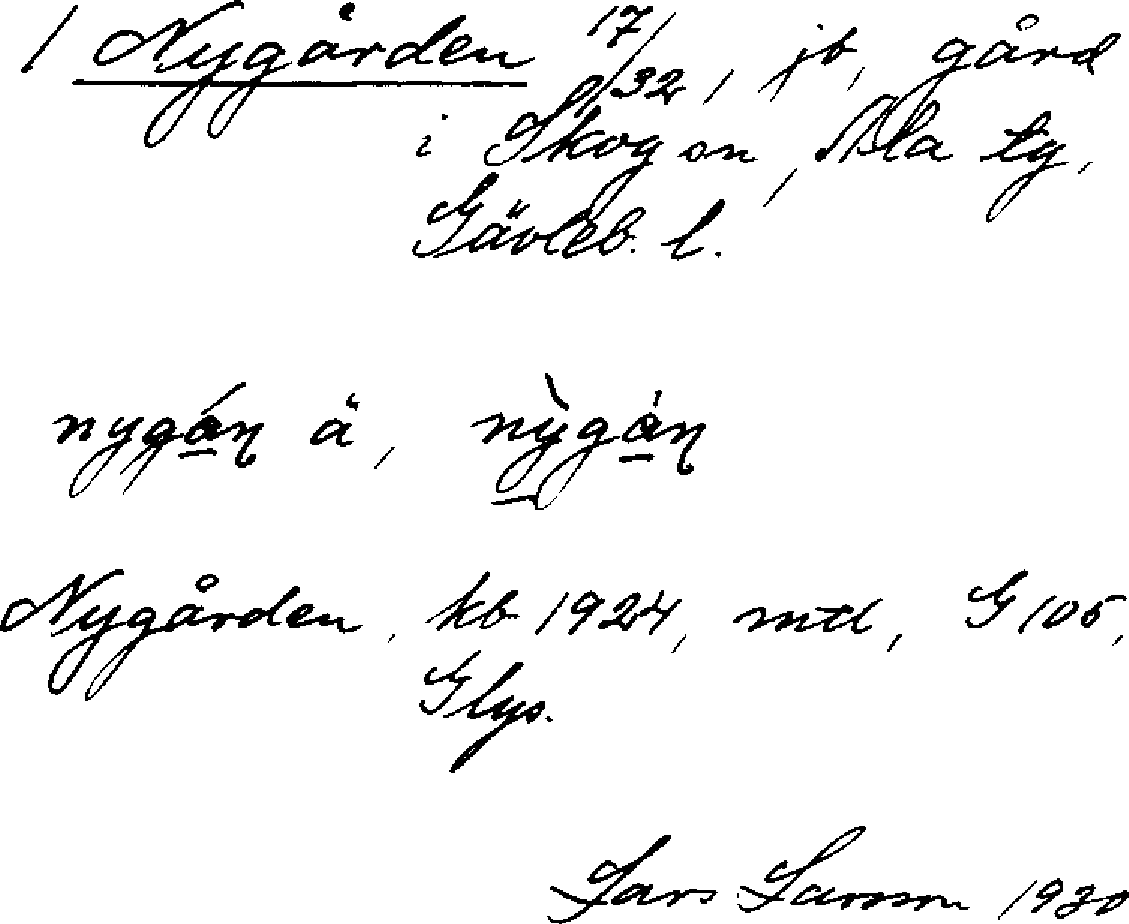 1 Nygården 17/32, jb, gård
i Skog sn, Ala tg,
Gävleb. l.
nygán ä, nỳgán
Nygården, kb 1924, mtl, G 105,
Glys.
Lars Larsson 1930